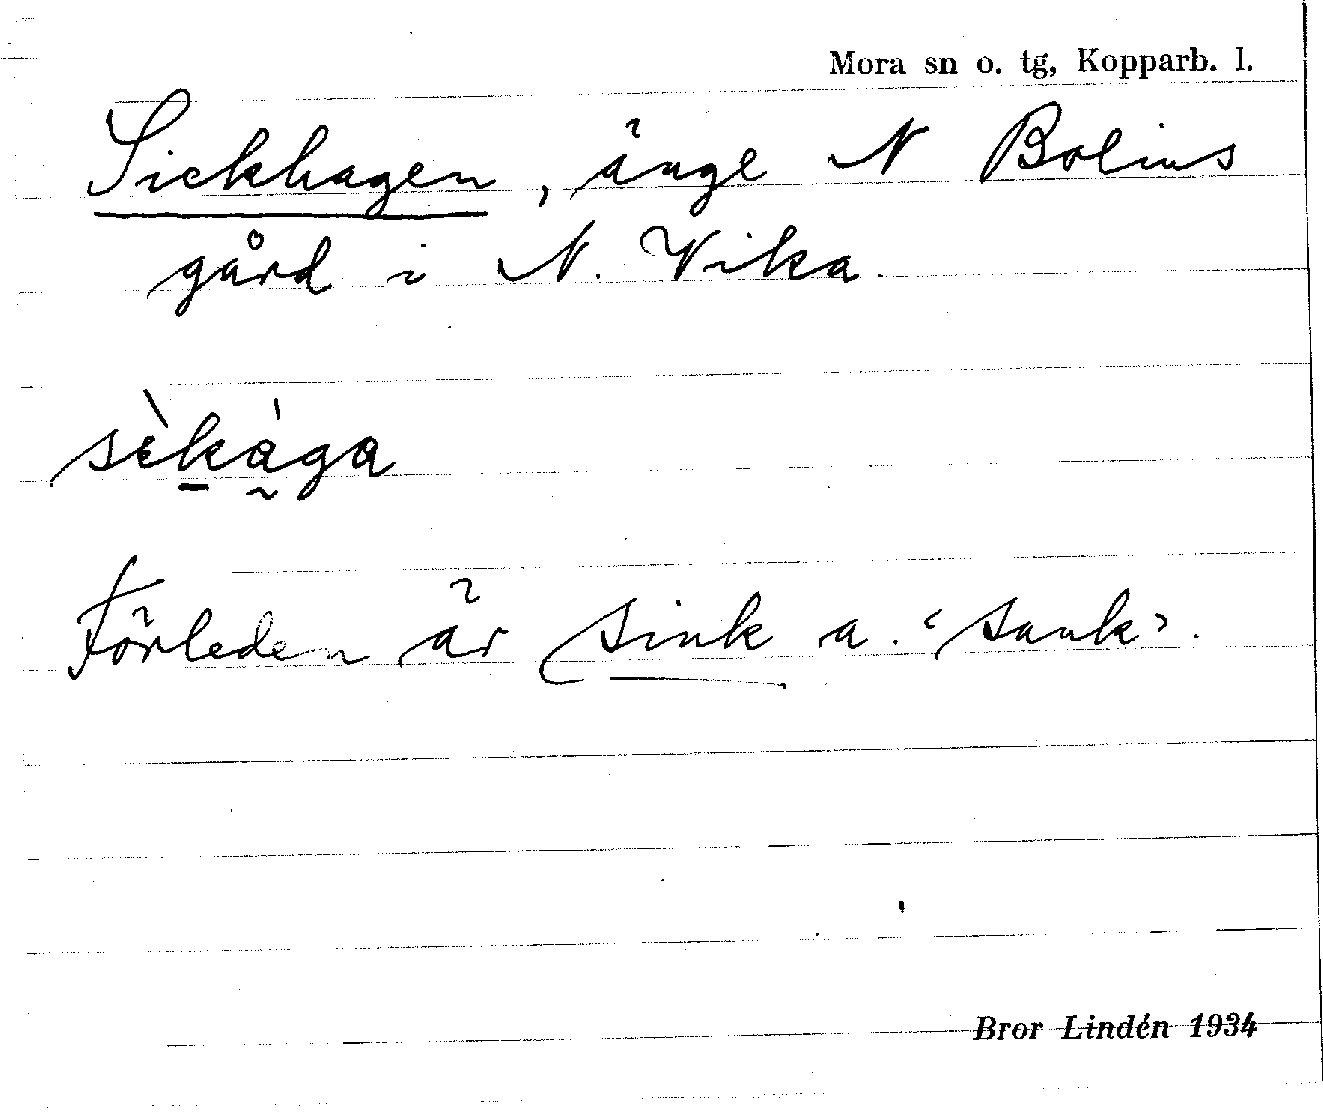 Mora sn o. tg, Kopparb. l.
Sickhagen, änge N Bolins
gård i N. Vika.
sèkàga
Förleden är sink a. ‘sank’.
Bror Lindén 1934